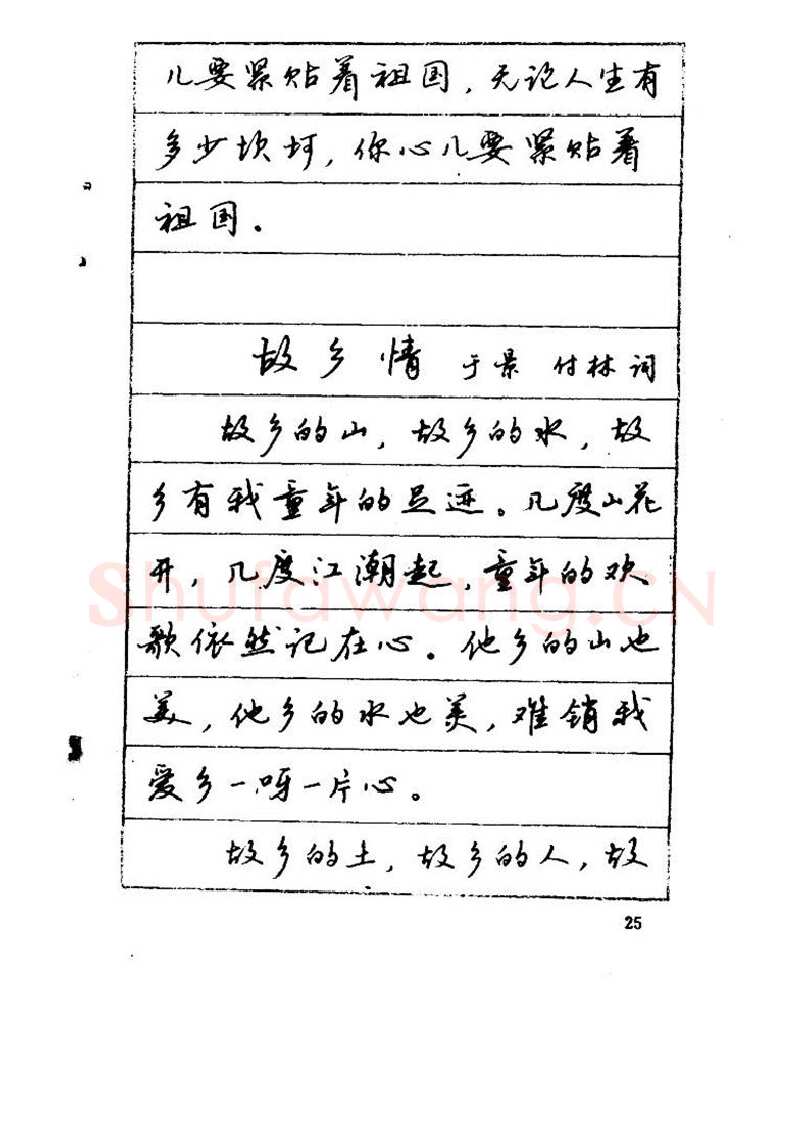 儿要紧贴着祖国，无论人生有
多少坎坷，你心儿要紧贴着
祖国。
故乡情 于景 付林词
故乡的山，故乡的水，故
乡有我童年的足迹。几度山花
开，几度江潮起，童年的欢
歌依然记在心。他乡的山也
美，他乡的水也美，难销我
爱乡一呀一片心。
故乡的土，故乡的人，故
25
Shufawang.CN